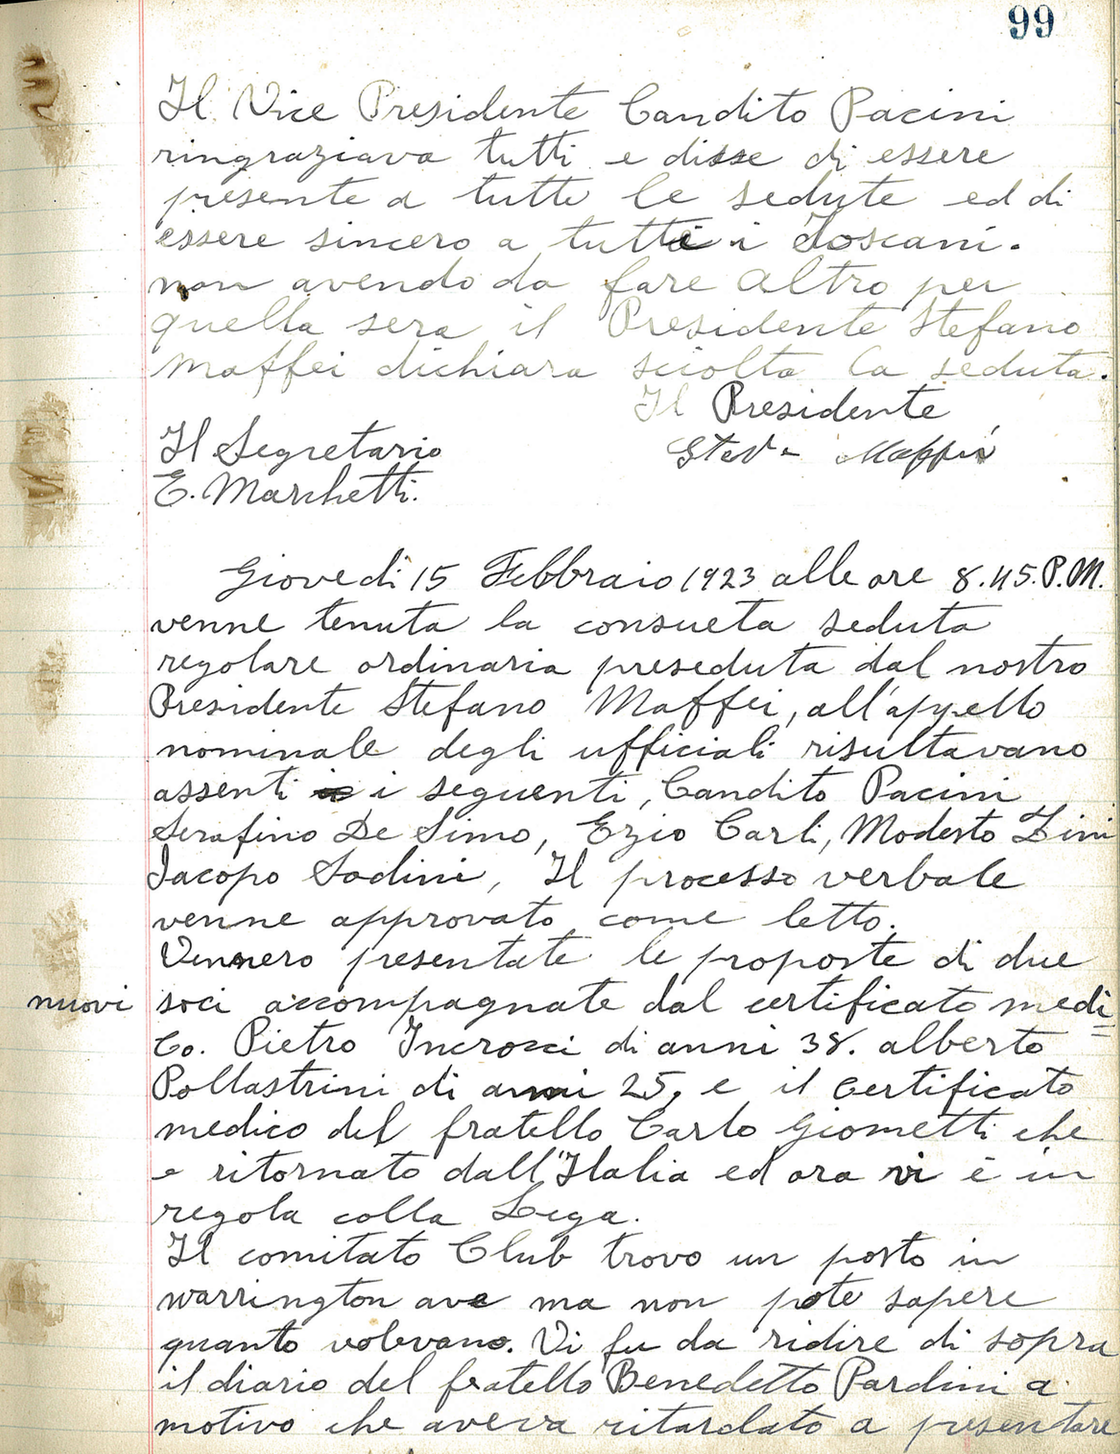 99
Il Vice Presidente Candito Pacini
ringraziava tutti e disse di essere
presente a tutte le sedute ed di
essere sincero a tutti i Toscani.
non avendo da fare altro per
quella sera il Presidente Stefano
Maffei dichiara sciolta la seduta.
Il Presidente
Il Segretario
Stef Maffei
E. Marchetti.
Giovedi 15 Febbraio 1923 alle ore 8.45. P.M.
venne tenuta la consueta seduta
regolare ordinaria preseduta dal nostro
Presidente Stefano Maffei, all'appello
nominale degli ufficiali risultavano
assenti i seguenti, Candito Pacini
Serafino De Simo, Ezio Carli, Modesto Zini
Jacopo Sodini, Il processo verbale
venne approvato come letto.
Vennero presentate le proposte di due
nuovi soci accompagnate dal certificato medi=
co. Pietro Incrocci di anni 38. alberto
Pollastrini di anni 25, e il certificato
medico del fratello Carlo Giometti che
e ritornato dall'Italia ed ora vi è in
regola colla Lega.
Il comitato Club trovo un posto in
warrington ave ma non pote sapere
quanto volevano. Vi fu da ridire di sopra
il diario del fratello Benedetto Pardini a
motivo che aveva ritardato a presentare